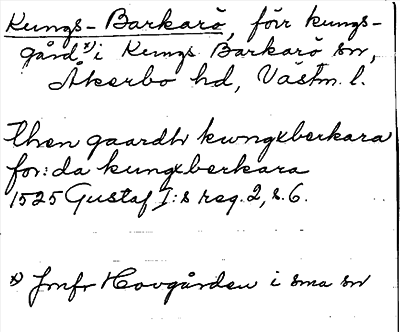 Kungs-Barkarö, förr kungs-
gård x) i Kungs Barkarö sn,
Åkerbo hd, Västm. l.
Then gaardh kwngxberkara
for:da kungxberkara
1525 Gustaf I:s reg. 2, s. 6.
x) Jmfr Hovgården i sma sn